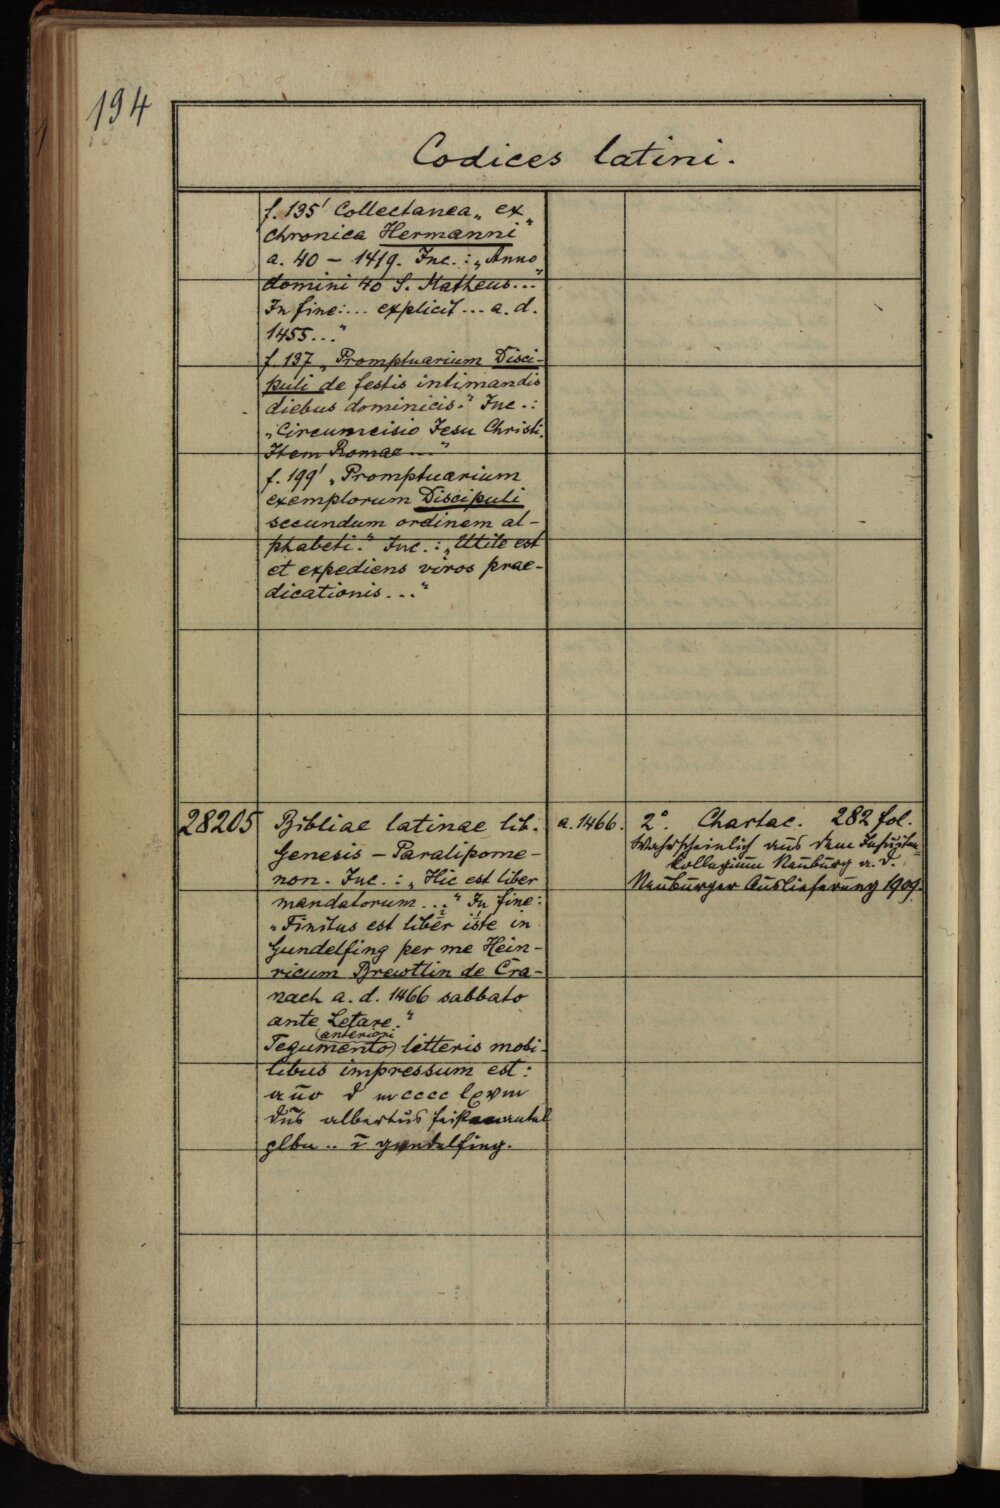 194
Codices latini.
f. 135' Collectanea „ex
chronica Hermanni"
a. 40 – 1419. Inc.: „Anno
domini 40 S. Matheus..."
In fine:... explicit... a. d.
1455..."
f. 137 „Promptuarium Disci-
puli de festis intimandis
diebus dominicis." Inc.:
„Circumcisio Jesu Christi.
Item Romae..."
f. 199' „Promptuarium
exemplorum Discipuli
secundum ordinem al-
phabeti." Inc.: „Utile est
et expediens viros prae-
dicationis..."
28205 Bibliae latinae lib. a. 1466. 2°. Chartac. 282 fol.
Genesis – Paralipome-
non. Inc.: „Hic est liber
mandatorum..." In fine:
„Finitus est liber iste in
Gundelfing per me Hein-
ricum Brewtlin de Cra-
nach a. d. 1466 sabbato
ante Letare."
Tegumento (anteriori) litteris mobi-
libus impressum est:
año d mcccc lxvm
dñs albertus
glbu .. ī gundelfing.
Wahrscheinlich aus dem Jesuiten-
kollegium Neuburg a. d.
Neuburger Auslieferung 1909.